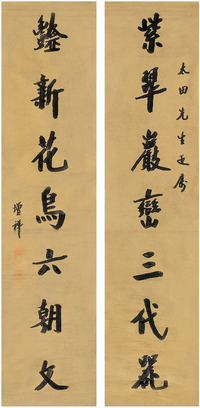 太田先生正屬
紫翠巖巒三代器
豔新花鳥六朝文
增祥